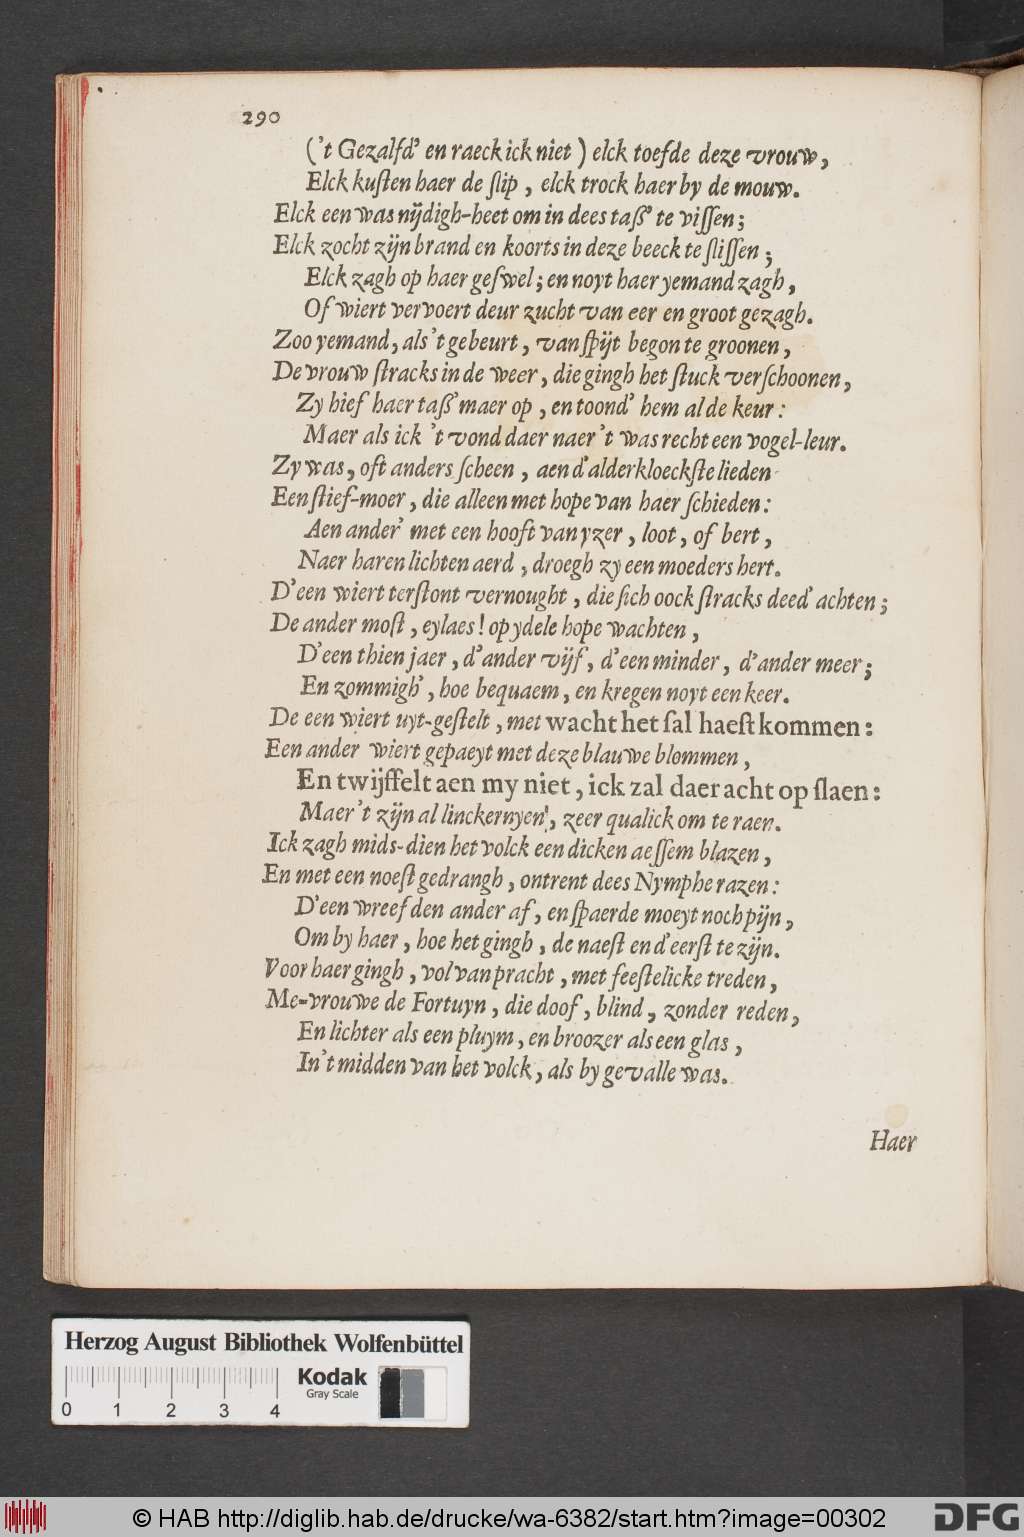 290
('t Gezalfd' en raeck ick niet) elck toefde deze vrouw,
Elck kuſten haer de ſlip, elck trock haer by de mouw.
Elck een was nijdigh-heet om in dees taſſ' te viſſen;
Elck zocht zijn brand en koorts in deze beeck te ſliſſen;
Elck zagh op haer geſwel; en noyt haer yemand zagh,
Of wiert vervoert deur zucht van eer en groot gezagh.
Zoo yemand, als 't gebeurt, van ſpijt begonte groonen,
De vrouw ſtracks in de weer, die gingh het ſtuck verſchoonen,
Zy hief haer taſſ' maer op, en toond' hem al de keur:
Maer als ick 't vond daer naer 't was recht een vogel-leur.
Zy was, oft anders ſcheen, aen d'alderkloeckſte lieden
Een ſtief-moer, die alleen met hope van haer ſchieden:
Aen ander' met een hooft van yzer, loot, of bert,
Naer haren lichten aerd, droegh zy een moeders hert.
D'een wiert terſtont vernought, die ſich oock ſtracks deed' achten;
De ander moſt, eylaes! op ydele hope wachten,
D'een thien jaer, d'ander vijf, d'een minder, d'ander meer;
En zommigh', hoe bequaem, en kregen noyt een keer.
De een wiert uyt-geſtelt, met wacht het ſal haeſt kommen:
Een ander wiert gepaeyt met deze blauwe blommen,
En twijffelt aen my niet, ick zal daer acht op ſlaen:
Maer 't zijn al linckernyen', zeer qualick om te raen.
Ick zagh mids-dien het volck een dicken aeſſem blazen,
En met een noeſt gedrangh, ontrent dees Nymphe razen:
D'een wreef den ander af, en ſpaerde moeyt noch pijn,
Om by haer, hoe het gingh, de naeſt en d'eerſt te zijn.
Voor haer gingh, vol van pracht, met feeſtelicke treden,
Me-vrouwe de Fortuyn, die doof, blind, zonder reden,
En lichter als een pluym, en broozer als een glas,
In 't midden van het volck, als by gevalle was.
Haer
Herzog August Bibliothek Wolfenbüttel
Kodak
Gray Scale
0 1 2 3 4
© HAB http://diglib.hab.de/drucke/wa-6382/start.htm?image=00302
DFG